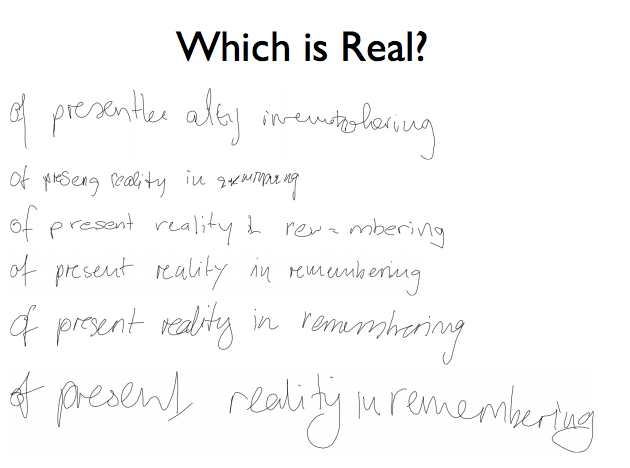 Which is Real?
of presenthe alty inemotshering
of preseng reality in
of present reality in rem-mbering
of present reality in remembering
of present reality in remembering
of present reality in remembering